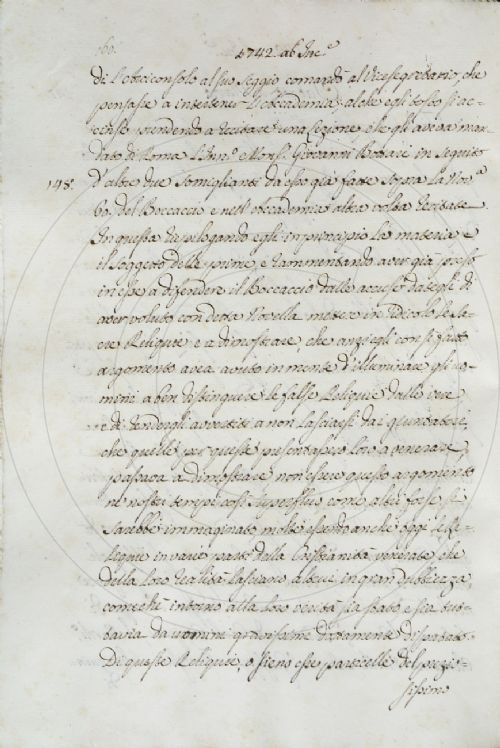 60.
1742. ab Inc.e
di L'Arciconsolo al suo seggio comandò al Vicesegretario, che
pensasse a intrattener L'Accademia, al che egli tosto si ac-
cinse prendendo a recitare una Lezione, che gli aveva man-
dato di Roma L'Inn.o e Mons.r Giovanni Bottari in seguito
148. d'altre due somiglianti da esso già fatte sopra La Nov.a
60. del Boccaccio e nell'Accademia altra volta recitate
In questa riepilogando egli in principio La materia e
il soggetto delle prime, e rammentando aver già preso
in esse a difendere il Boccaccio dalle accuse dategli di
aver voluto con detta Novella metter in ridicolo le sa-
cre Reliquie e a dimostrare, che anzi egli con sì fatto
argomento avea avuto in mente d'illuminare gli uo-
mini a ben distinguere le false Reliquie dalle vere
e di rendergli avvertiti a non Lasciarsi dai giuntatori,
che quelle per queste presentassero Loro a venerare,
passava a dimostrare non essere questo argomento
ne' nostri tempi così superfluo come altri forse si
sarebbe immaginato molte essendo anche oggi le Re-
liquie in varie parti della Cristianità venerate che
della Loro realtà Lasciano altrui in gran dubbiezza,
comechè intorno alla Loro verità sia stato e sia tut-
tavia da uomini gravissimi dottamente disputato.
Di queste Reliquie, o sieno esse particelle del prezio-
sissimo